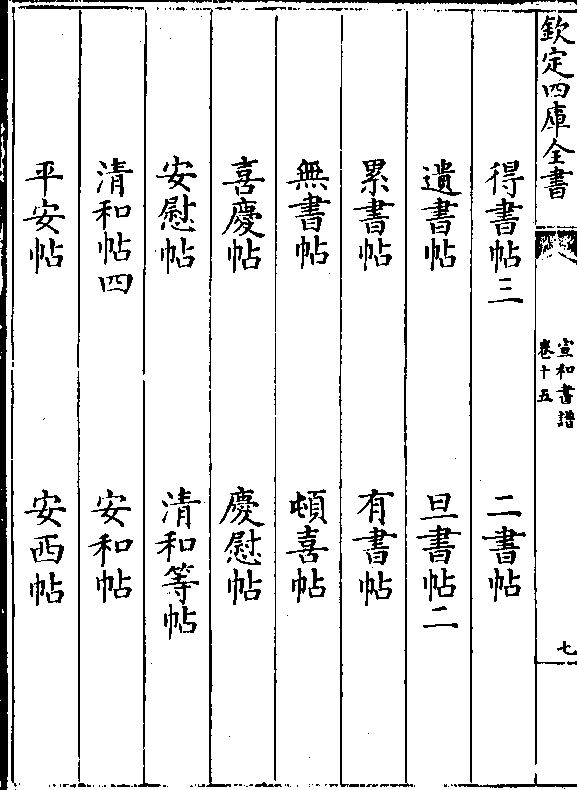 欽定四庫全書
宣和書譜
卷十五
七
得書帖三 二書帖
遺書帖 旦書帖二
累書帖 有書帖
無書帖 頓喜帖
喜慶帖 慶慰帖
安慰帖 清和等帖
清和帖四 安和帖
平安帖 安西帖